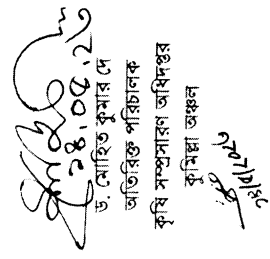 ১৪.০৫.২৩
ড. মোহিত কুমার দে
অতিরিক্ত পরিচালক
কৃষি সম্প্রসারণ অধিদপ্তর
কুমিল্লা অঞ্চল